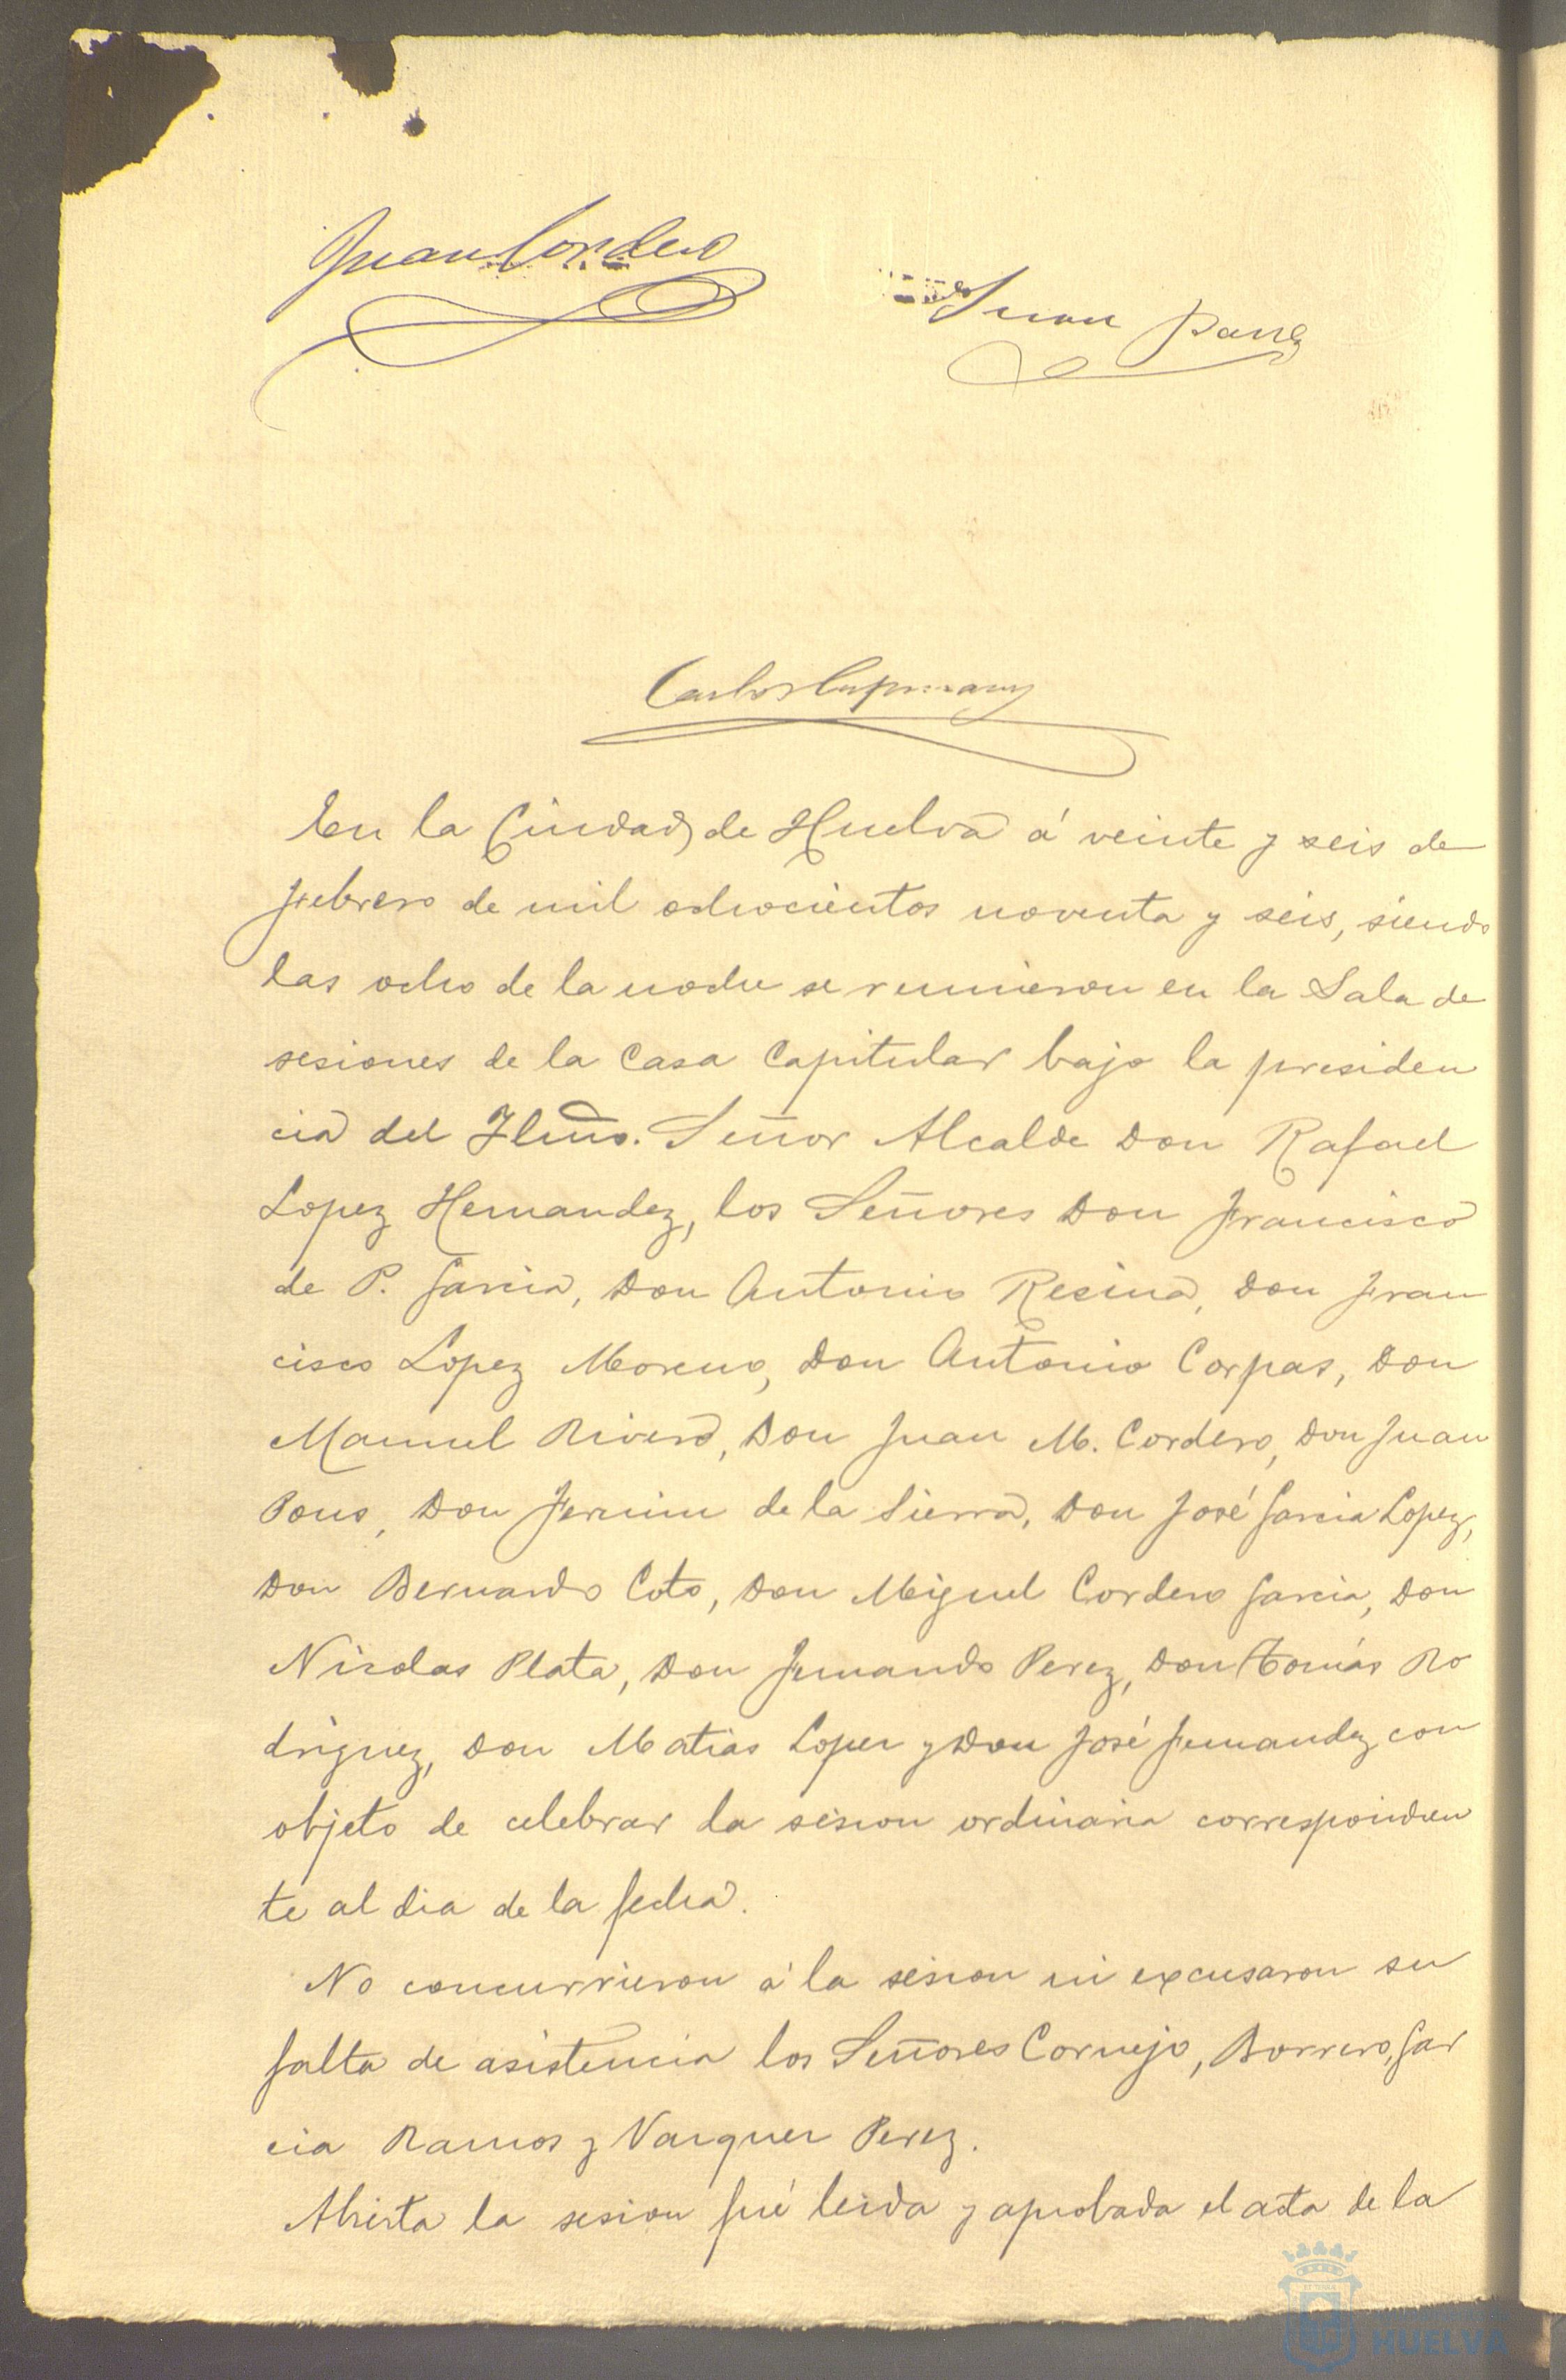 Juan Cordero
Juan Pons
Carlos Capmany
En la Ciudad de Huelva á veinte y seis de
febrero de mil ochocientos noventa y seis, siendo
las ocho de la noche se reunieron en la Sala de
sesiones de la Casa Capitular bajo la presiden
cia del Ilmo. Señor Alcalde Don Rafael
Lopez Hernandez, los Señores Don Francisco
de P. Garcia, Don Antonio Resina, Don Fran
cisco Lopez Moreno, Don Antonio Corpas, Don
Manuel Rivero, Don Juan M. Cordero, Don Juan
Pons, Don Fermin de la Sierra, Don José Garcia Lopez,
Don Bernardo Coto, Don Miguel Cordero Garcia, Don
Nicolas Plata, Don Fernando Perez, Don Tomás Ro
driguez, Don Matias Lopez y Don José Fernandez con
objeto de celebrar la sesion ordinaria correspondien
te al dia de la fecha.
No concurrieron á la sesion ni excusaron su
falta de asistencia los Señores Cornejo, Borrero, Gar
cia Ramos y Vazquez Perez.
Abierta la sesion fué leida y aprobada el acta de la
HUELVA